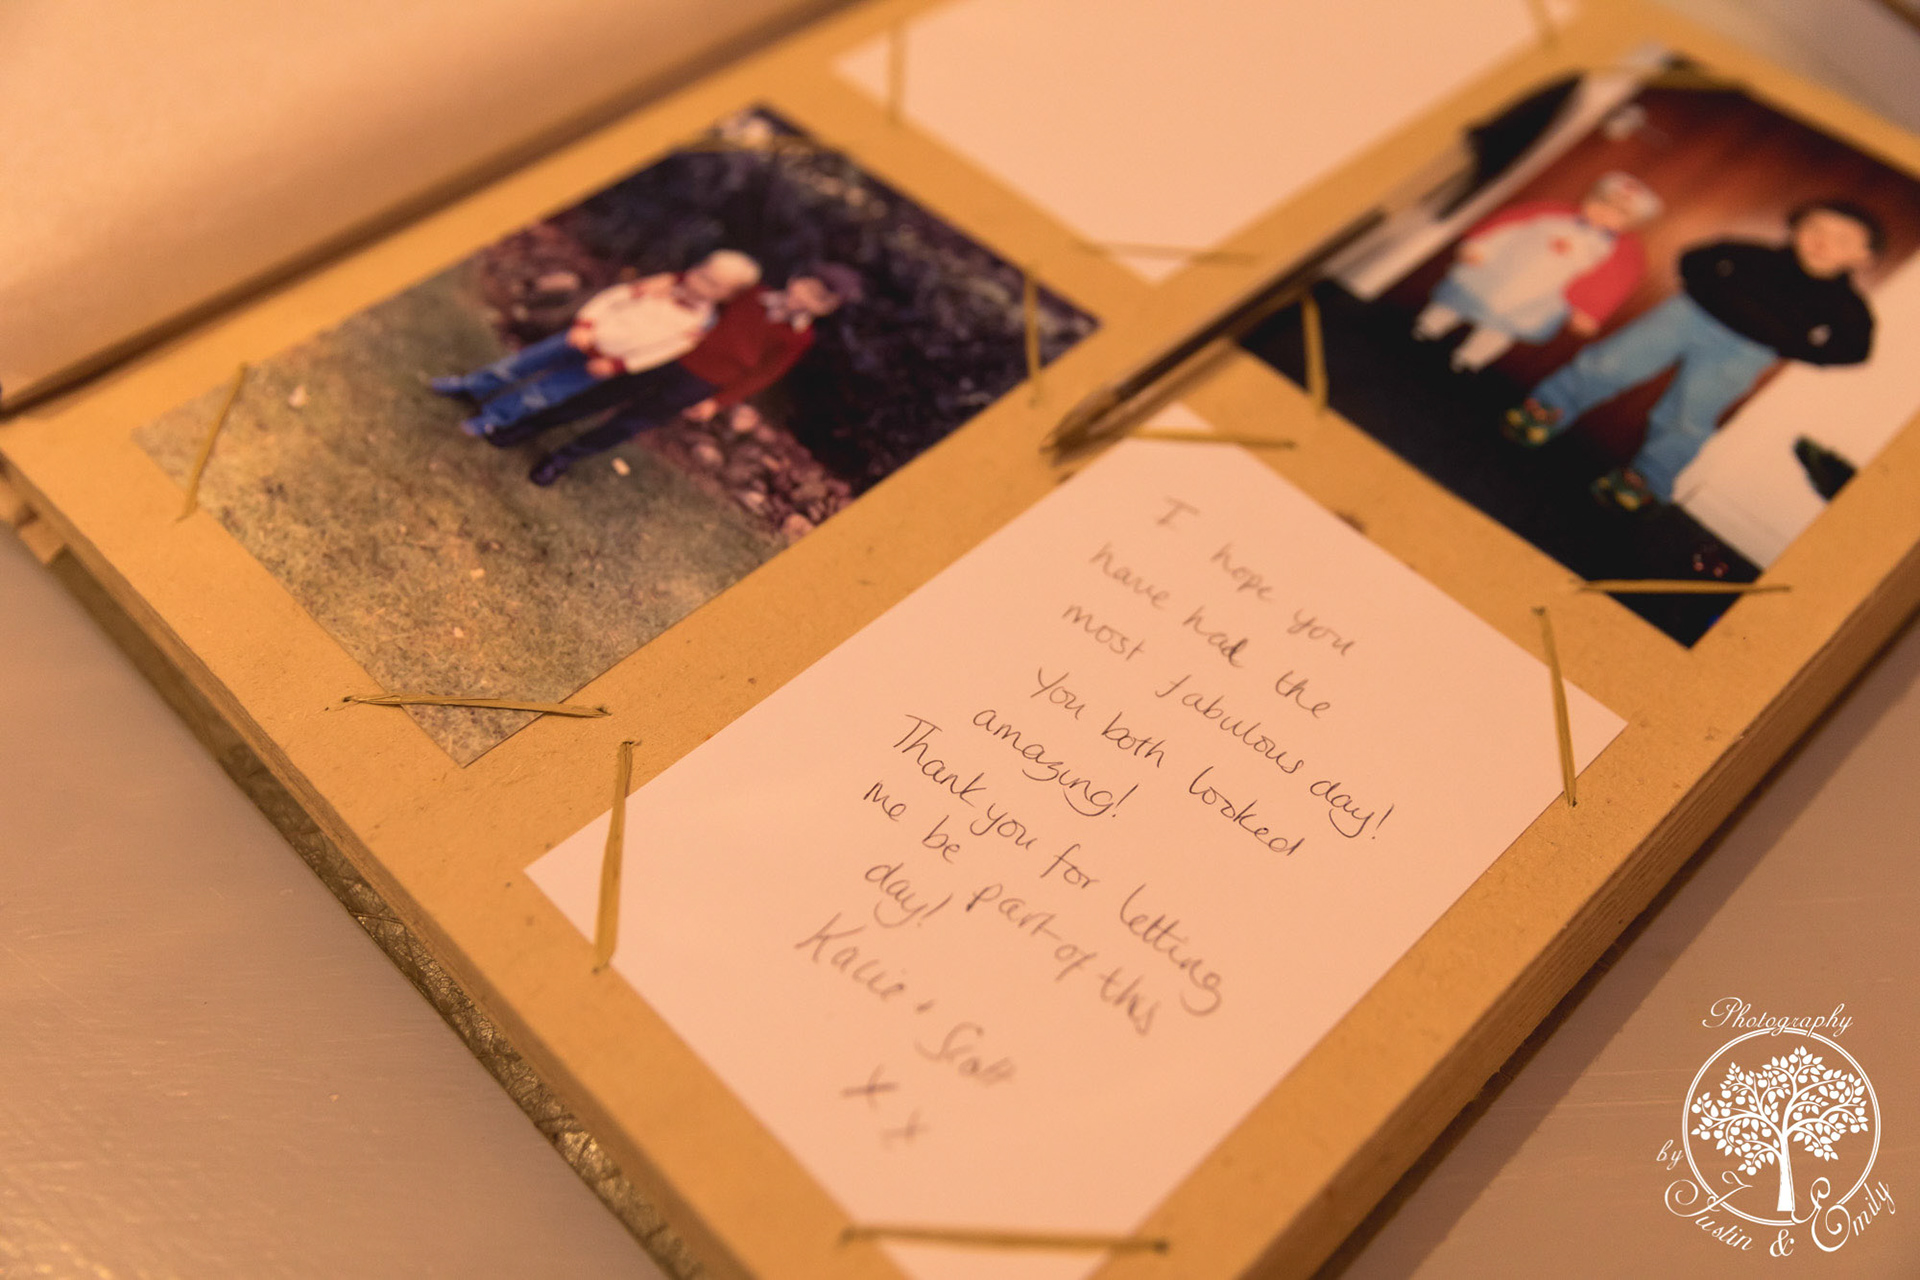 I hope you
have had the
most fabulous day!
You both looked
amazing!
Thank you for letting
me be part of this
day!
Kacie + Scott
x x
Photography
by
Justin & Emily